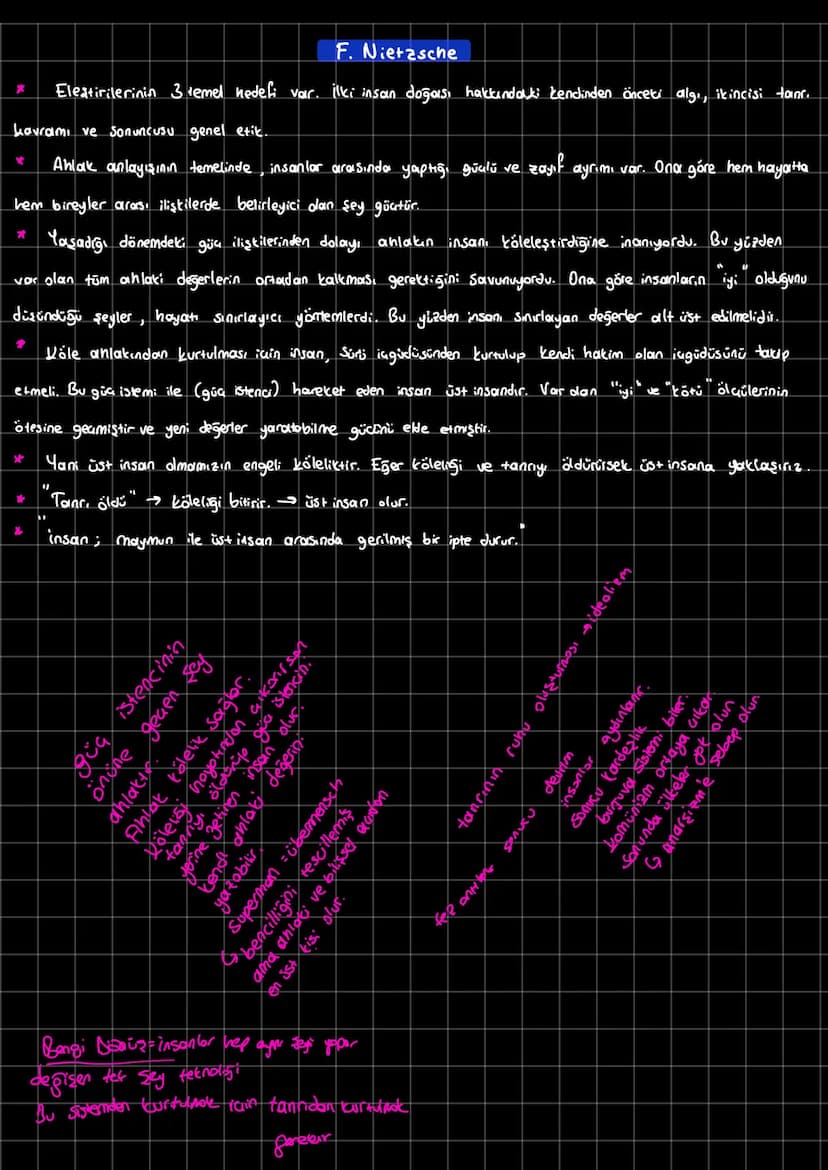 F. Nietzsche
* Eleştirilerinin 3 temel hedefi var. İlki insan doğası hakkındaki kendinden önceki algı, ikincisi tanrı
kavramı ve sonuncusu genel etik.
* Ahlak anlayışının temelinde, insanlar arasında yaptığı güçlü ve zayıf ayrımı var. Ona göre hem hayatta
hem bireyler arası ilişkilerde belirleyici olan şey güçtür.
* Yaşadığı dönemdeki güç ilişkilerinden dolayı ahlakın insanı köleleştirdiğine inanıyordu. Bu yüzden
var olan tüm ahlaki değerlerin ortadan kalkması gerektiğini savunuyordu. Ona göre insanların "iyi" olduğunu
düşündüğü şeyler, hayatı sınırlayıcı yöntemlerdi. Bu yüzden insanı sınırlayan değerler alt üst edilmelidir.
* Köle ahlakından kurtulması için insan, sürü içgüdüsünden kurtulup kendi hakim olan içgüdüsünü takip
etmeli. Bu güç istemi ile (güç istenci) hareket eden insan üst insandır. Var olan "iyi" ve "kötü" ölçülerinin
ötesine geçmiştir ve yeni değerler yaratabilme gücünü elde etmiştir.
* Yani üst insan olmamızın engeli köleliktir. Eğer köleliği ve tanrıyı öldürürsek üst insana yaklaşırız.
* "Tanrı öldü" → köleliği bitirir. → üst insan olur.
* "insan; maymun ile üst insan arasında gerilmiş bir ipte durur."
güç istencinin
önüne geçen şey
ahlaktır.
Ahlak kölelik sağlar.
Köleliği hayatından çıkarırsan
tanrıyı öldürüp güç istencin.
yerine getiren insan olur.
kendi ahlaki değerini
yazabilir.
Superman = übermensch
↳ bencilliğini tescillemiş
ama ahlaki ve bilişsel açından
en üst kişi olur.
tanrının ruhu oluşturması → idealizm
tez antitez sonucu devrim
insanlar aydınlanır.
Sonucu kardeşlik
burjuva sistemi biter.
Komünizm ortaya çıkar
Sonunda ülkeler yok olur
↳ anarşizm'e sebep olur
Bengi Dönüş = insanlar hep aynı şeyi yapar
değişen tek şey teknoloji
Bu sistemden kurtulmak için tanrıdan kurtulmak
gerekir